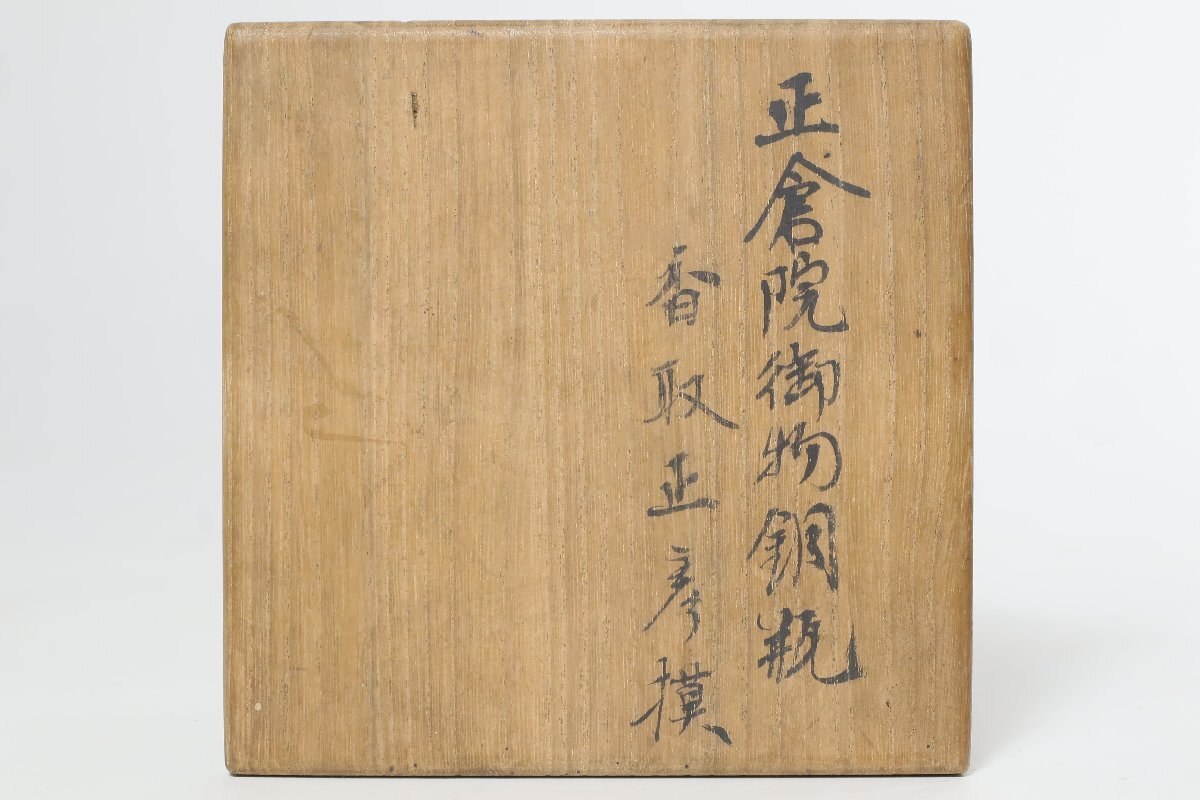 正倉院御物銅瓶
香取正彦摸